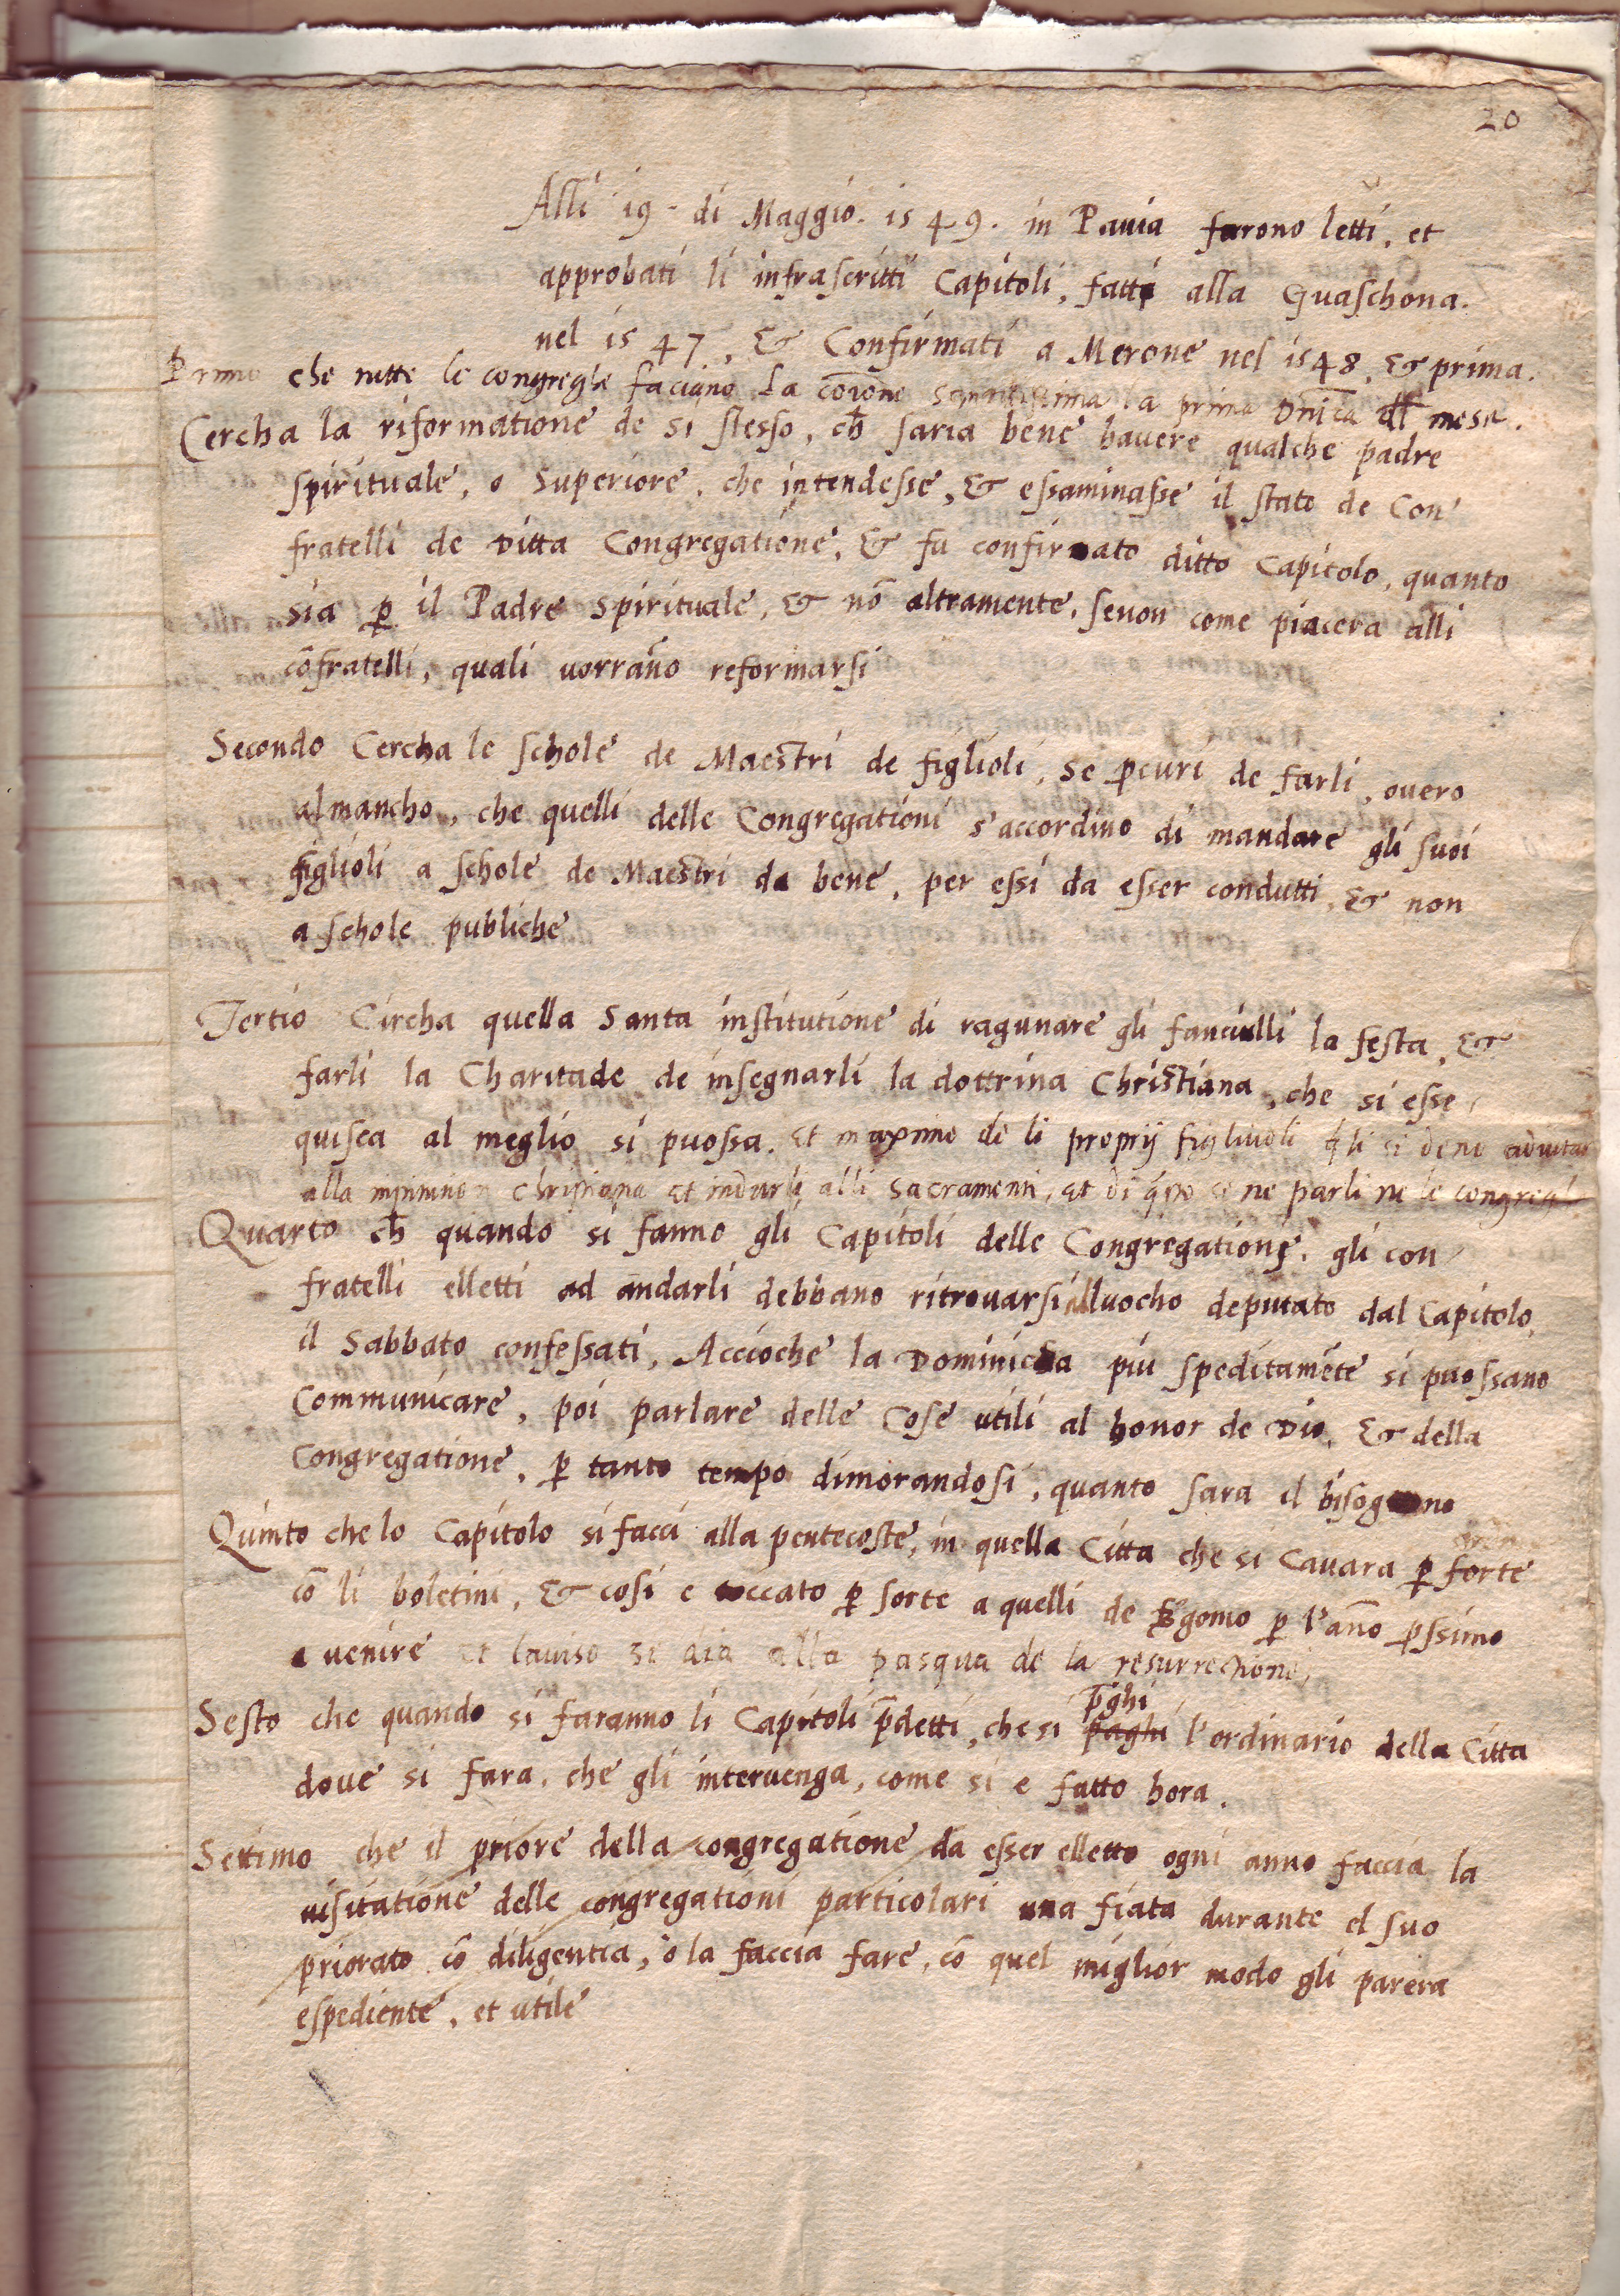 20
Alli i9 di Maggio. is49. in Pauia furono letti, et
approbati li infrascritti Capitoli, fatti alla Guaschona.
nel is47, & Confirmati a Merone nel is48. & prima.
Primo che tutte le congregle faciano la cōione la prima Dnica dl mese.
Cercha la riformatione de si stesso, ch̄ saria bene hauere qualche padre
spirituale, o Superiore, che intendesse, & essaminasse il stato de Con
fratelli de Ditta Congregatione, & fu confirmato ditto Capitolo, quanto
sia p̱ il Padre spirituale, & nō altramente, senon come piacera alli
cōfratelli, quali uorrāno reformarsi
Secondo Cercha le schole de Maestri de figlioli, se ꝓcuri de farli, ouero
almancho, che quelli delle Congregationi s'accordino di mandare gli suoi
figlioli a schole de Maestri da bene, per essi da esser condutti, & non
a schole publiche
Tertio Circha quella Santa institutione di ragunare gli fanciulli la festa, &
farli la Charitade de insegnarli la dottrina Christiana, che si esse
quisca al meglio si puossa. Et maxime de li proprij figliuoli si
alla christiana Et indurli alli Sacramenti, Et di q̄sto se ne parli ne le congregl
Quarto ch̄ quando si fanno gli Capitoli delle Congregatione. gli con
fratelli elletti ad andarli debbano ritrouarsi al luocho deputato dal Capitolo,
il Sabbato confessati, Accioche la Dominica piu speditamēte si puossano
Communicare, poi parlare delle cose utili al honor de Dio, & della
Congregatione, p̱ tanto tempo dimorandosi, quanto sara il bisogno
Quinto che lo Capitolo si facci alla pentecoste, in quella Citta che si Cauara p̱ sorte
cō li boletini, & cosi e toccato p̱ sorte a quelli de Bgomo p̱ l'año pssimo
a uenire et lauiso se dia alla pasqua de la resurrectione,
Sesto che quando si faranno li Capitoli p̄detti, che si paghi p̄ghi l'ordinario della Citta
doue si fara, che gli interuenga, come si e fatto hora.
Settimo che il priore della congregatione da esser elletto ogni anno faccia la
uisitatione delle congregationi particolari una fiata durante el suo
priorato cō diligentia, o la faccia fare, cō quel miglior modo gli parera
espediente, et utile